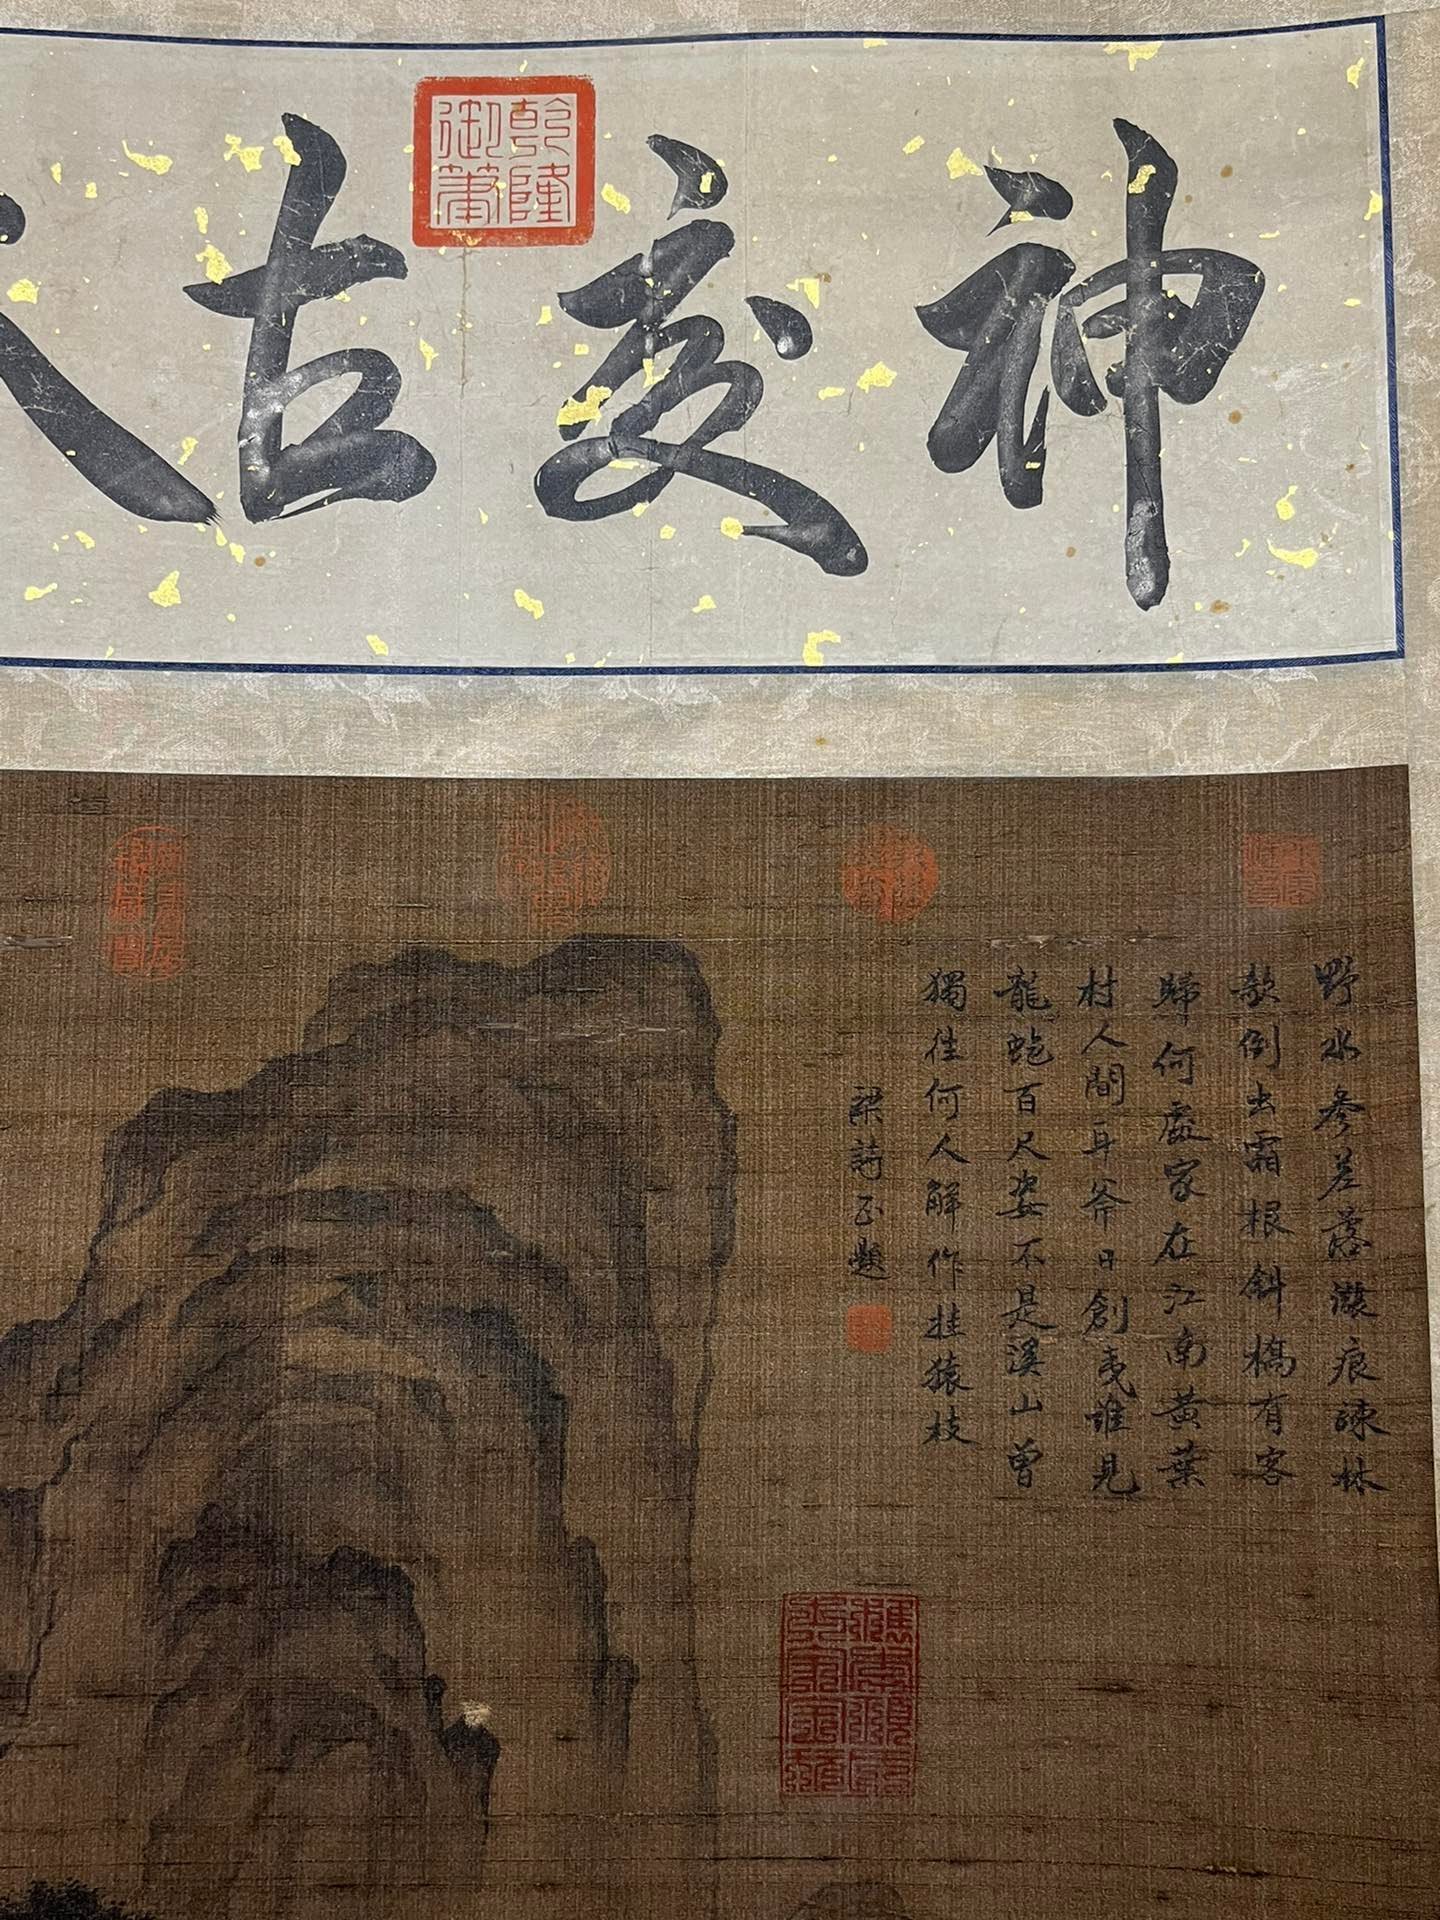 神交古
乾隆御筆
野水參差落漲痕疎林
欹倒出霜根斜橋有客
歸何處家在江南黃葉
村人間耳斧日創夷誰見
龍蛇百尺姿不是溪山曾
獨往何人解作挂猿枝
梁詩正題